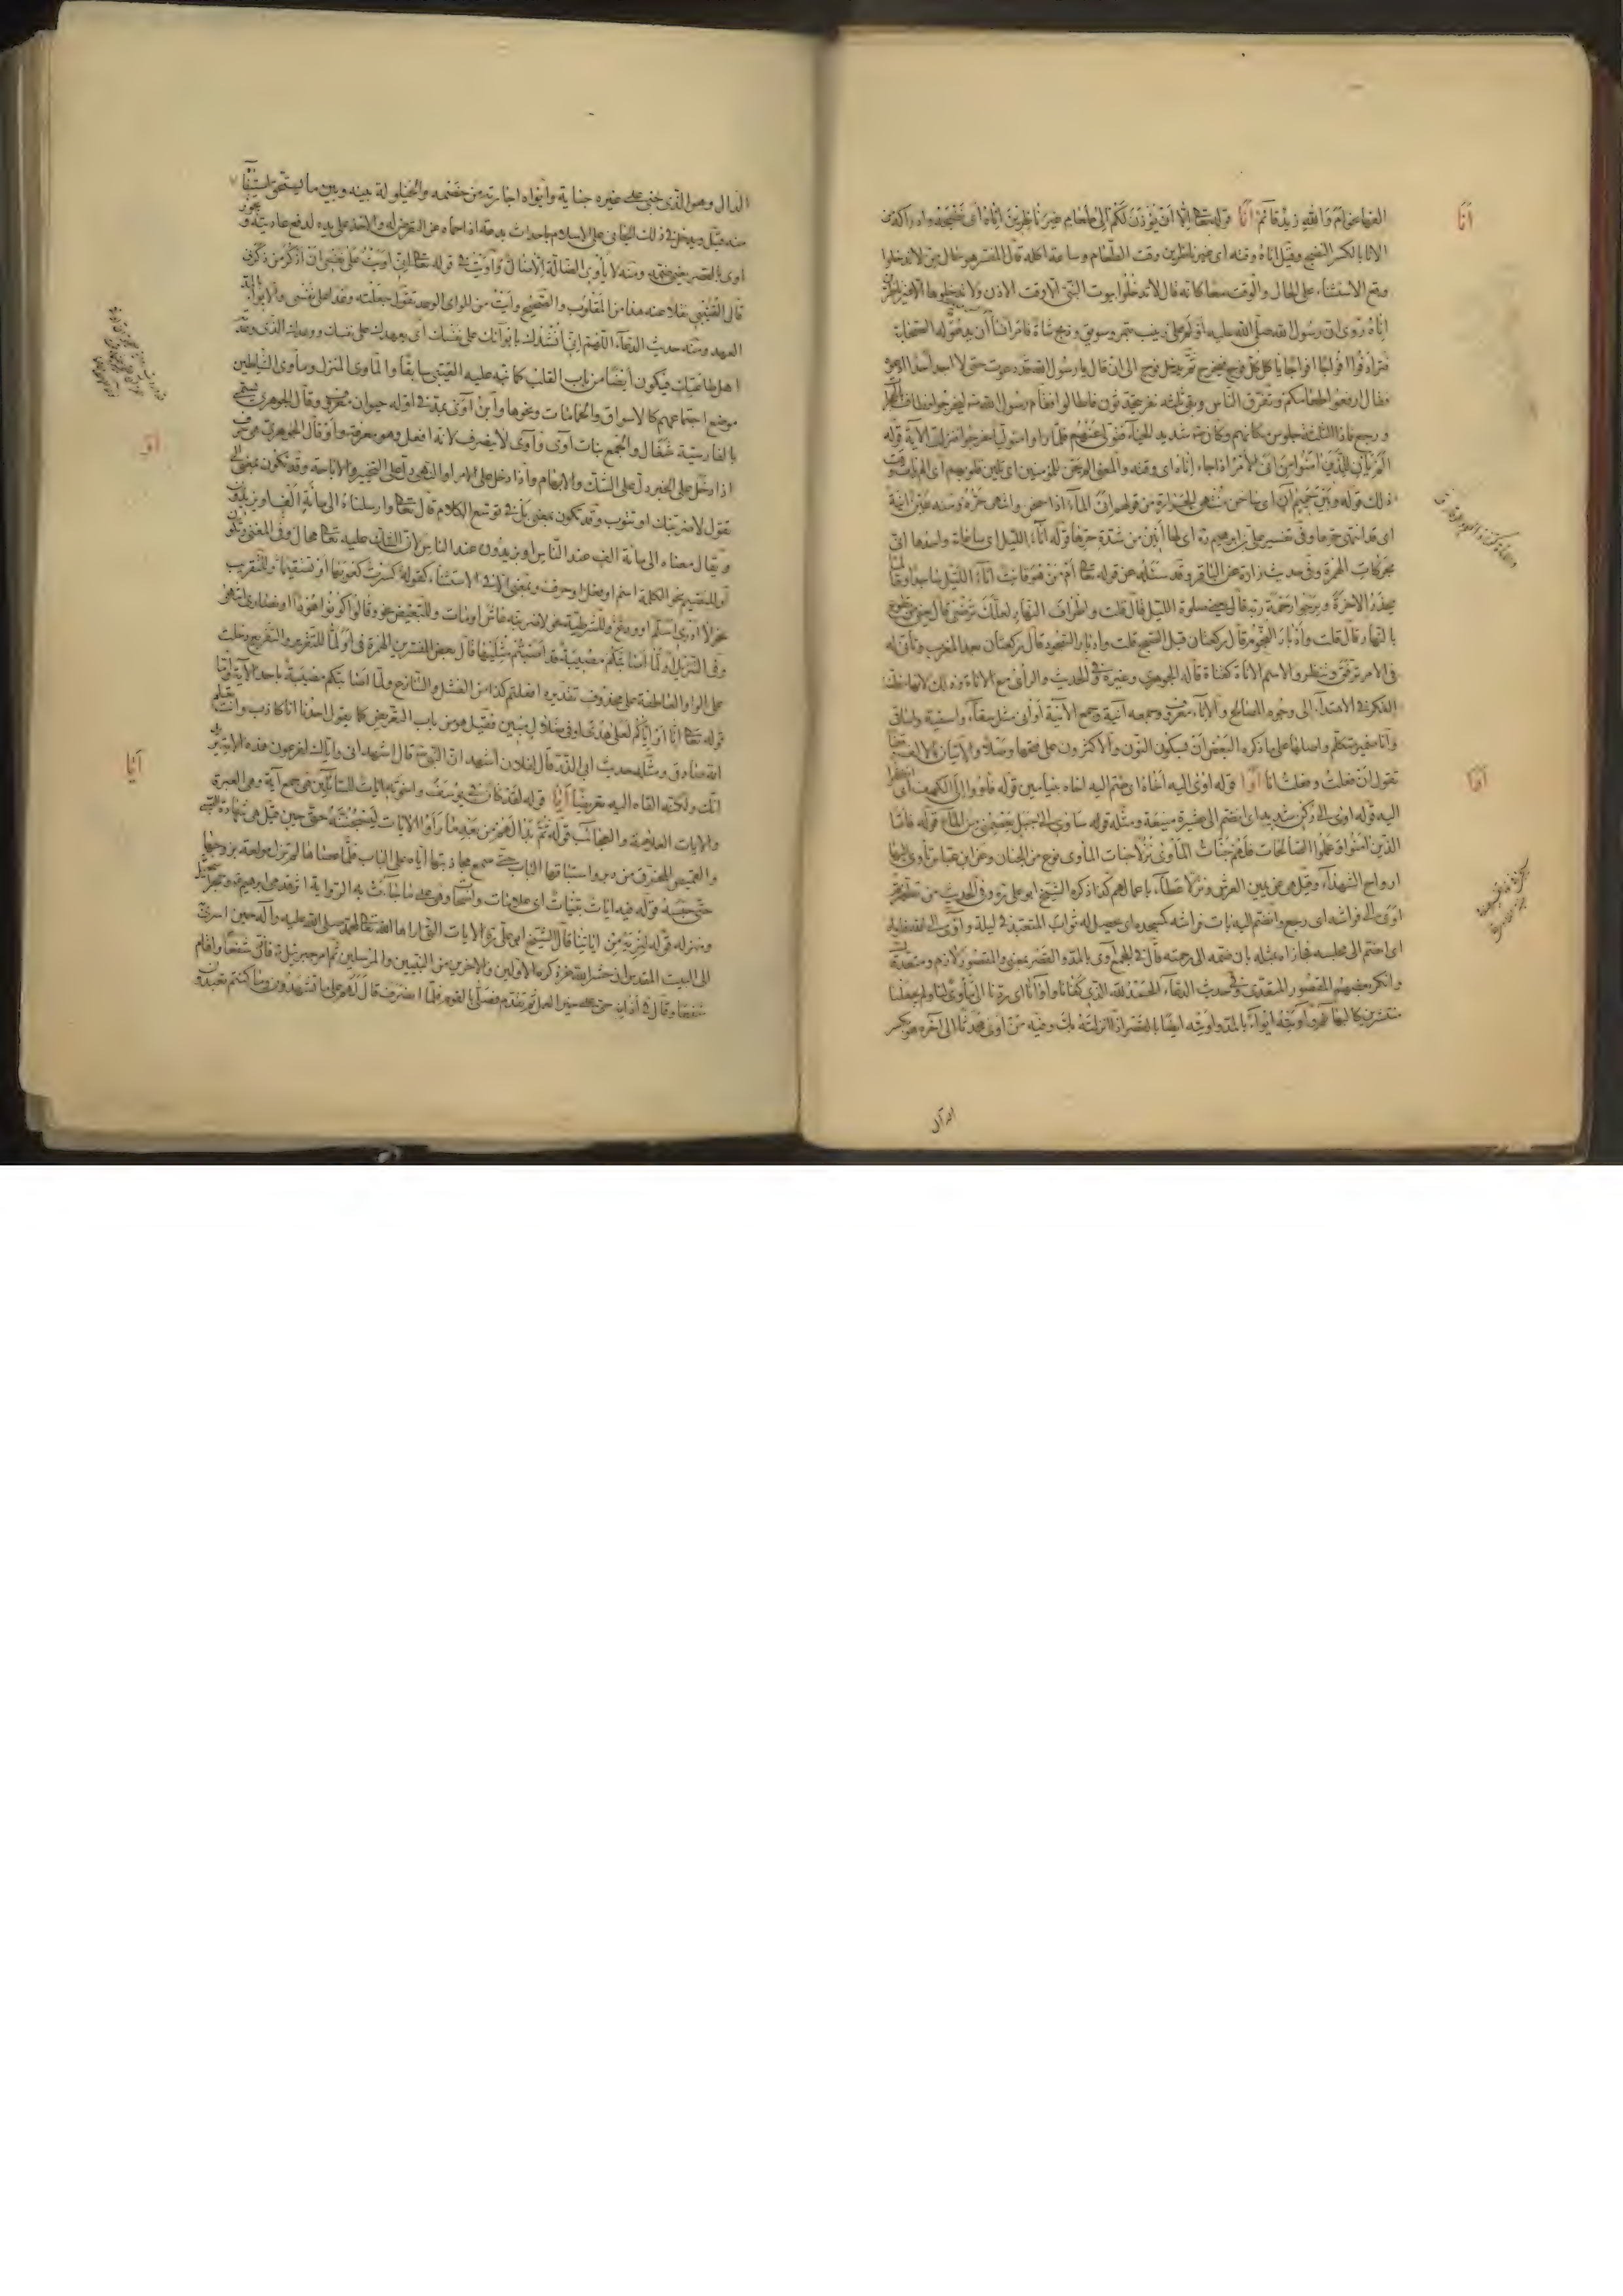 انا
الفها نحو ام والله زيد قائم انا قوله تعالى الا ان يؤذن لكم الى طعام غير ناظرين اناه اى نضجه وادراكه من
الانا بالكسر النضج وقيل اناه وقته اى غير ناظرين وقت الطعام وساعة اكله قال المفسر هو حال من لا تدخلوا
وقع الاستثناء على الحال والوقت معا كانه قال لا تدخلوا بيوت النبى الا وقت الاذن ولا تدخلوها الا غير ناظرين
اناه روى ان رسول الله صلى الله عليه اولم على زينب بتمر وسويق وذبح شاة فامر انسا ان يدعو له الصحابة
فترادفوا افواجا افواجا ياكل كل فوج فيخرج ثم يدخل فوج الى ان قال يا رسول الله قد دعوت حتى لا اجد احدا ادعوه
فقال ارفعوا طعامكم وتفرق الناس وبقى ثلثة نفر يتحدثون فاطالوا فقام رسول الله ليخرجوا فطاف
ورجع فاذا الثلثة جلوس مكانهم وكان شديد الحياء فتولى عنهم فلما راوه متوليا خرجوا فنزلت الآية قوله
الم يان للذين امنوا من انى الامر اذا جاء اناه اى وقته والمعنى الم يحن للمؤمنين اى تلين قلوبهم اى الم يات وقت
ذلك قوله وبين حميم ان اى ساخن منتهى الحرارة من قولهم انى الماء اذا سخن وانتهى حره ومنه عين انية
اى قد انتهى حرها وفى تفسير على بن ابراهيم اى لها انين من شدة حرها قوله اناء الليل اى ساعاته واحدها انى
بحركات الهمزة وفى حديث زرارة عن الباقر وقد سئله عن قوله تعالى امن هو قانت اناء الليل ساجدا وقائما
يحذر الاخرة ويرجوا رحمة ربه قال يعنى صلوة الليل قال قلت واطراف النهار لعلك ترضى قال يعنى تطوع
بالنهار قال قلت وادبار النجوم قال ركعتان قبل الصبح قلت وادبار السجود قال ركعتان بعد المغرب وتانى له
فى الامر ترفق وتنظر والاسم الاناة كقناة قاله الجوهرى وغيره وفى الحديث والراى مع الاناة وذلك لانها مظنة
الفكر فى الاهتداء الى وجوه المصالح والاناء معروف وجمعه آنية وجمع الآنية اوانى مثل سقاء واسقية واساقى
وانا ضمير متكلم واصلها على ما ذكره البعض ان بسكون النون والاكثرون على فتحها وصلا والاتيان بالالف وقفا
تقول ان فعلت وفعلت انا اوا قوله اوى اليه اخاه اى ضم اليه اخاه بنيامين قوله فاووا الى الكهف اى انضموا
اوا
اليه قوله اوى الى ركن شديد اى انضم الى عشيرة منيعة ومثله قوله ساوى الى جبل يعصمنى من الماء قوله فاما
الذين امنوا وعملوا الصالحات فلهم جنات الماوى نزلا جنات الماوى نوع من الجنان وعن ابن عباس تاوى اليها
ارواح الشهداء وقيل هى عن يمين العرش ونزلا عطاء باعمالهم كذا ذكره الشيخ ابو على ره وفى الحديث من تطهر ثم
اوى الى فراشه اى رجع وانضم اليه بات فراشه كمسجده اى يحصل له ثواب المتعبد فى ليلة واوى الى الله
اى انضم الى مجلسه فجازاه بمثله بان ضمه الى رحمته قال فى المجمع آوى بالمد والقصر بمعنى والمقصور لازم ومتعد
وانكر بعضهم المقصور المتعدى وفى حديث الدعاء الحمد لله الذى كفانا واوانا اى ردنا الى ماوى لنا ولم يجعلنا
منتشرين كالبهائم وآويته ايواء بالمد واويته ايضا بالقصر اذا انزلته بك وفيه من اوى محدثا الى آخره هو بكسر
الدال
الدال وهو الذى جنى على غيره جناية وايواه اجارته من خصمه والحيلولة بينه وبين ما يستحق استيفاء
منه
اوى بالقصر يعنى ينضم ومنه لا ياوى الضالة الا ضال واويت فى قوله تعالى انى اويت على نفسى ان اذكر من ذكرنى
قال القتيبى نقلا عنه هذا من المقلوب والصحيح وايت من الواى الوعد تقول جعلته وعدا على نفسى والايواء
العهد ومنه حديث الدعاء اللهم انى انشدك بايوائك على نفسك اى بعهدك على نفسك ووعدك الذى وعدته
اهل طاعتك فيكون ايضا من باب القلب كما نبه عليه القتيبى سابقا والماوى المنزل وماوى الشياطين
موضع اجتماعهم كالاسواق والحمامات ونحوها وابن آوى بمد فى اوله حيوان معروف وقال الجوهرى يسمى
بالفارسية شغال والجمع بنات اوى وآوى لا ينصرف لانه افعل وهو معرفة واو قال الجوهرى هى حرف
او
اذا دخل على الخبر دل على الشك والابهام واذا دخل على الامر او النهى دل على التخيير والاباحة وقد تكون بمعنى الى
تقول لاضربنك او تتوب وقد تكون بمعنى بل فى توسع الكلام قال تعالى وارسلناه الى مائة الف او يزيدون
ويقال معناه الى مائة الف عند الناس او يزيدون عند الناس لان الشك عليه تعالى محال وفى المغنى وتكون
او للتقسيم نحو الكلمة اسم او فعل او حرف وبمعنى الا فى الاستثناء كقوله كسرت كعوبها او تستقيما وللتقريب
نحو لا ادرى اسلم او ودع وللشرطية نحو لاضربنه عاش او مات وللتبعيض نحو وقالوا كونوا هودا او نصارى انتهى
وفى التنزيل او لما اصابتكم مصيبة قد اصبتم مثليها قال بعض المفسرين الهمزة فى او لما للتقرير والتقريع دخلت
على الواو العاطفة على محذوف تقديره افعلتم كذا من الفشل والتنازع ولما اصابتكم مصيبة باحد الآية واما
قوله تعالى انا او اياكم لعلى هدى او فى ضلال مبين فقيل هو من باب التعريض كما يقول احدنا انا كاذب وانت تعلم
انه صادق ومثله حديث ابى الذر قال لفلان اشهد ان النبى قال اشهد انى واياك لفرعون هذه الامة يريد
انك ولكنه القاه اليه تعريضا ايا قوله لقد كان فى يوسف واخوته ايات للسائلين هى جمع آية وهى العبرة
ايا
والايات العلامة والعجائب قوله ثم بدا لهم من بعد ما راوا الايات ليسجننه حتى حين قيل هى شهادة الصبى
والقميص المخرق من دبر واستباقهما الباب حتى سمع مجاذبتها اياه على الباب فلما عصاها لم تزل مولعة بزوجها
حتى حبسه قوله فيه ايات بينات اى علامات واضحات وهى على ما جاءت به الرواية اثر قدمى ابراهيم والحجر
ومنزله قوله لنريه من اياتنا قال الشيخ ابو على ره الايات التى اراها الله تعالى لمحمد صلى الله عليه وآله حين اسرى
الى البيت المقدس ان حشر الله عز ذكره الاولين والاخرين من النبيين والمرسلين ثم امر جبرئيل فاذن شفعا واقام
شفعا وقال فى اذانه حى على خير العمل ثم تقدم فصلى بالقوم فلما انصرف قال لهم على ما تشهدون وما كنتم تعبدون